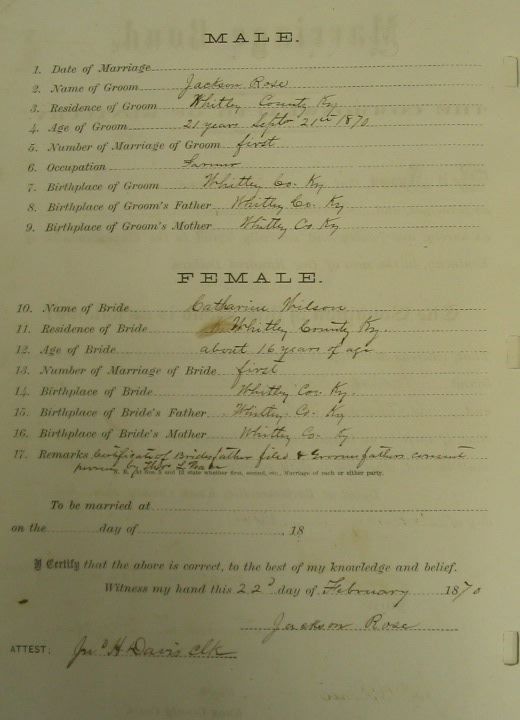 MALE.
1. Date of Marriage
2. Name of Groom Jackson Rose
3. Residence of Groom Whitley County Ky
4. Age of Groom 21 years Septr 21st 1870
5. Number of Marriage of Groom first
6. Occupation Farmer
7. Birthplace of Groom Whitley Co. Ky
8. Birthplace of Groom's Father Whitley Co. Ky
9. Birthplace of Groom's Mother Whitley Co Ky
FEMALE.
10. Name of Bride Catharine Wilson
11. Residence of Bride Whitley County Ky.
12. Age of Bride about 16 years of age
13. Number of Marriage of Bride first
14. Birthplace of Bride Whitley Co. Ky.
15. Birthplace of Bride's Father Whitley Co. Ky
16. Birthplace of Bride's Mother Whitley Co. Ky
17. Remarks Certificate of Brides father filed & Grooms fathers consent
proven by Thos
N. B. At Nos. 5 and 13 state whether first, second, etc., Marriage of each or either party.
To be married at
on the day of , 18
I Certify that the above is correct, to the best of my knowledge and belief.
Witness my hand this 22d day of February 1870
Jackson Rose
ATTEST: Jno H Davis clk